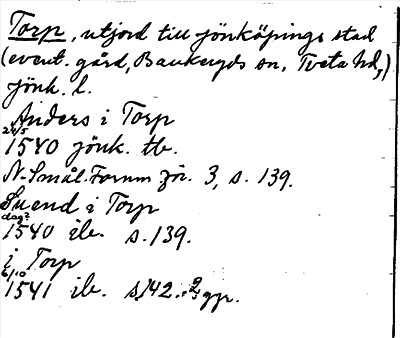 Torp, utjord till Jönköpings stad
(event. gård, Bankeryds sn, Tveta hd,)
Jönk. l.
Anders i Torp
24/5
1540 Jönk. tb.
N. Smål. Fornm. för. 3, s. 139.
Suend i Torp
dag?
1540 ib. s. 139.
i Torp
6/10
1541 ib. s. 142. 2 ggr.